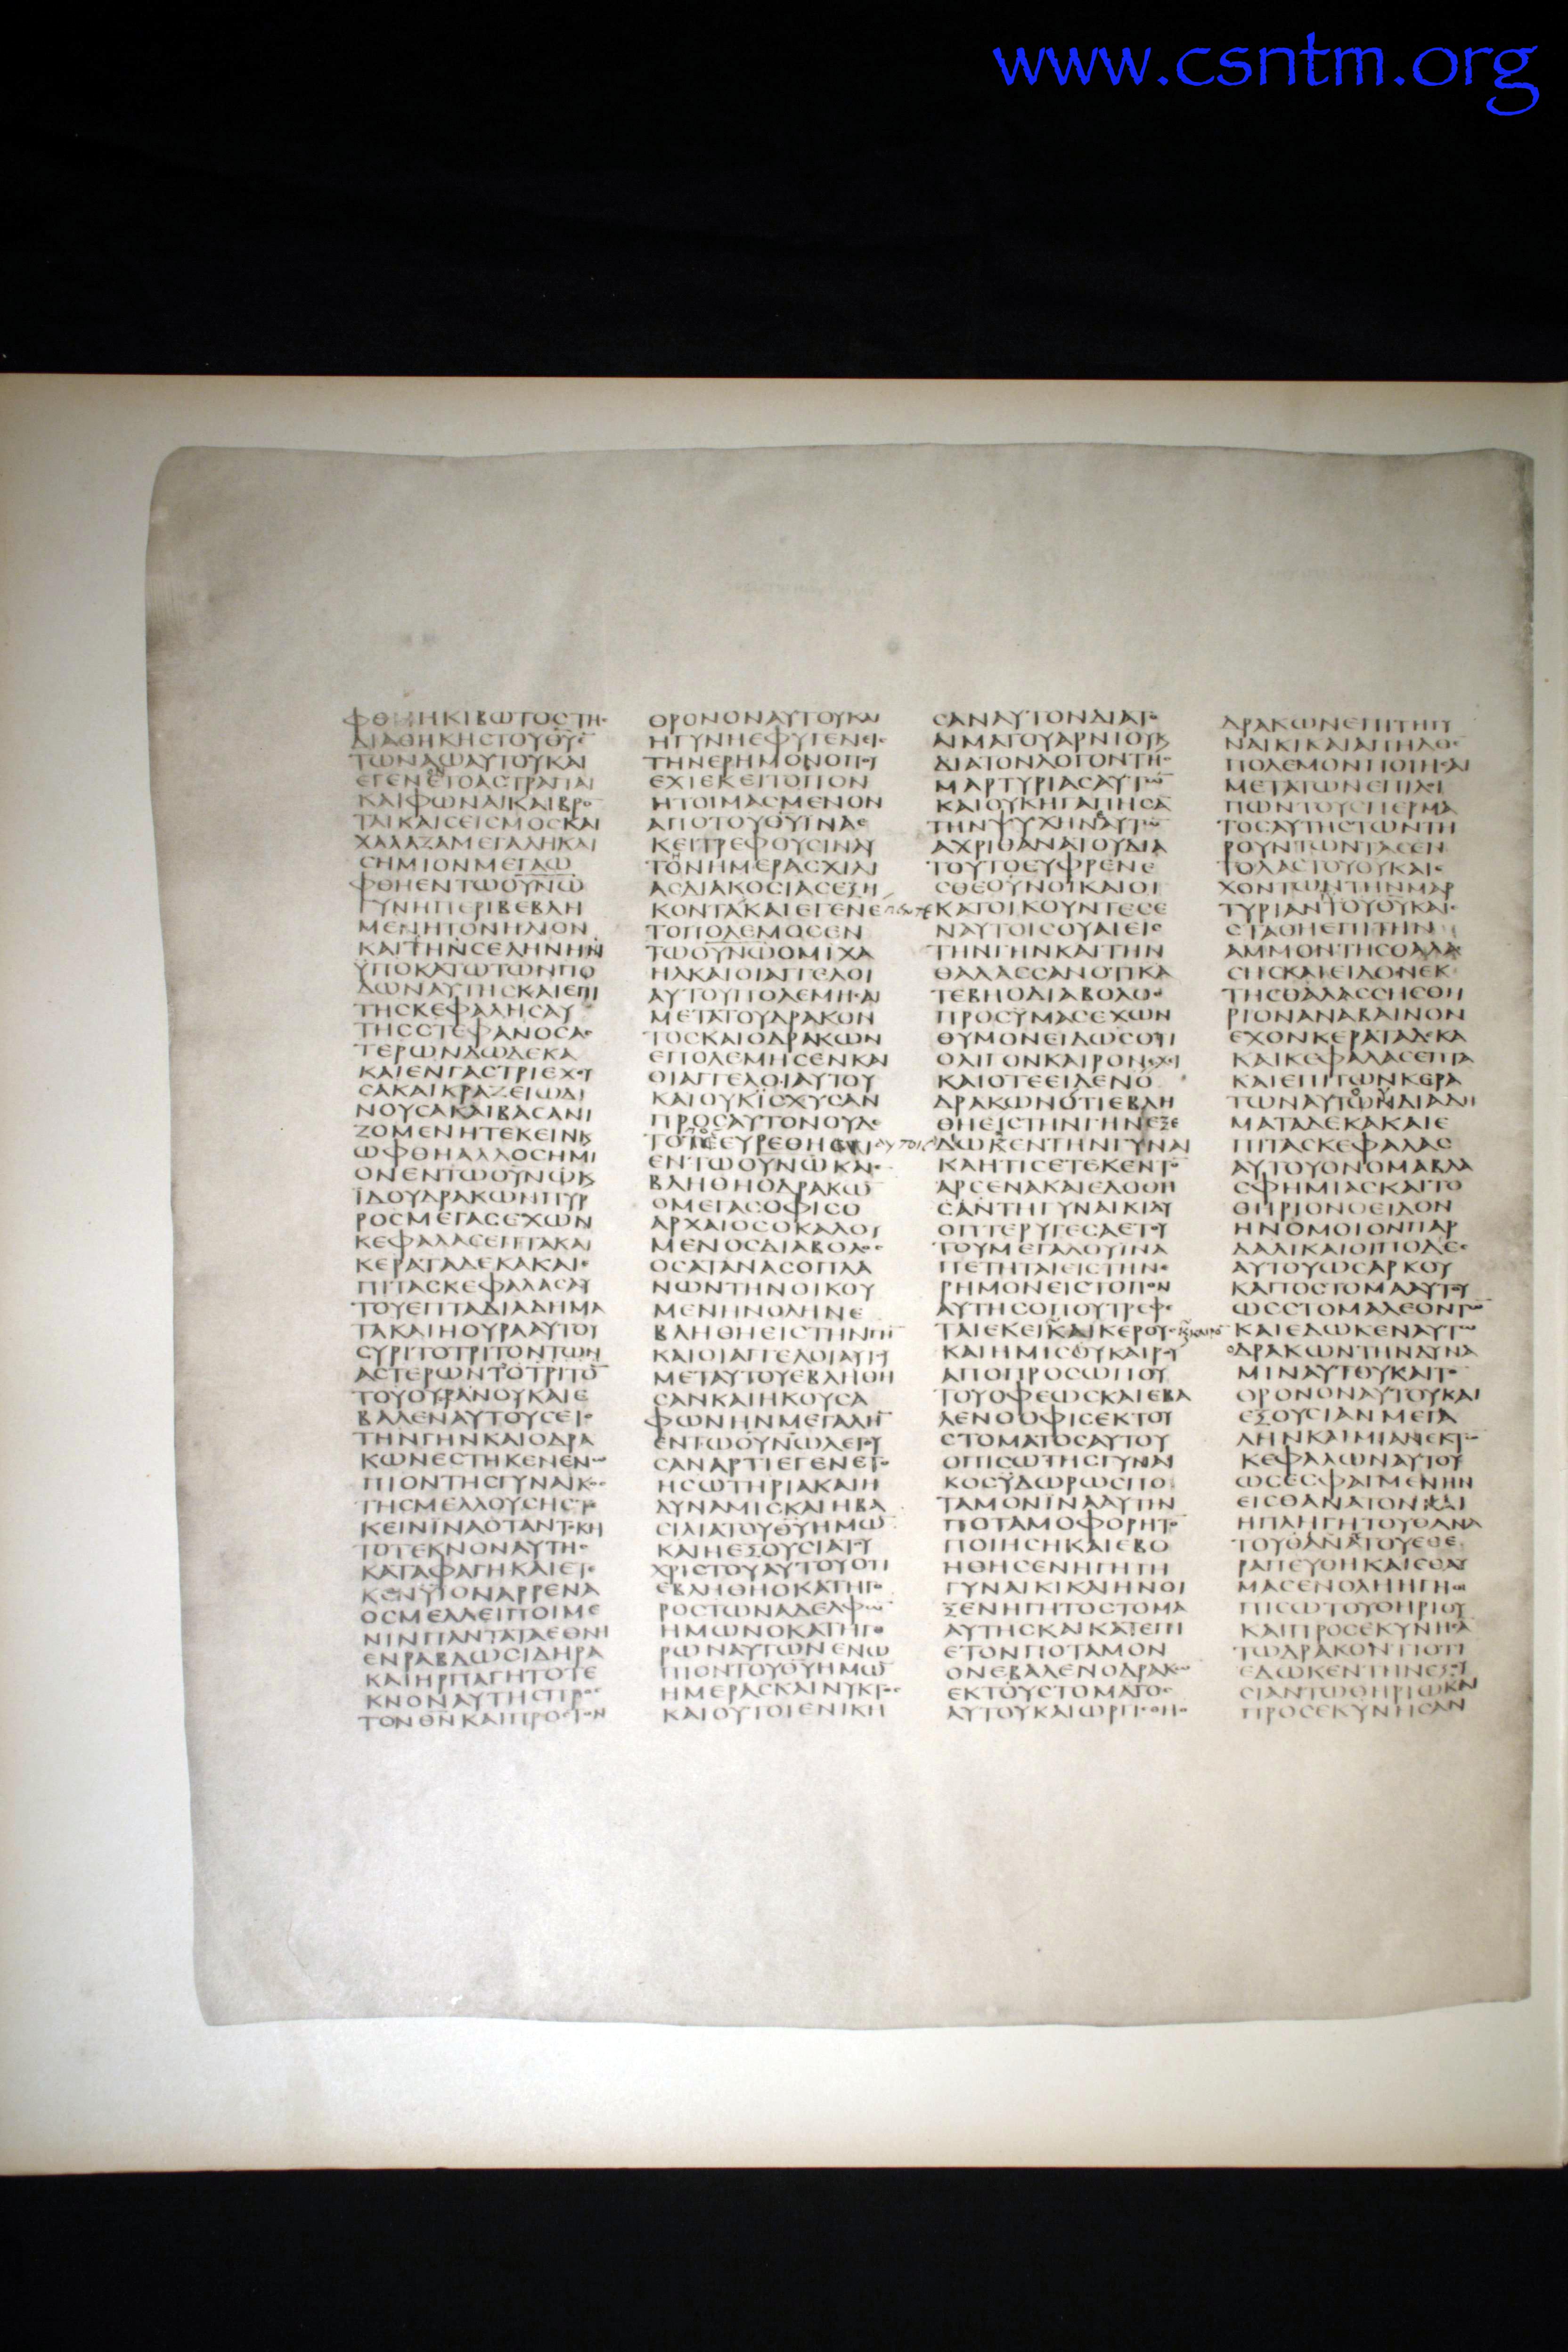 www.csntm.org
ΦΘΗ ΗΚΙΒΩΤΟCΤΗC
ΔΙΑΘΗΚΗCΤΟΥΘΥ
ΤΩΝΑΩΑΥΤΟΥΚΑΙ
ΕΓΕΝΕΤΟΑCΤΡΑΠΑΙ
ΚΑΙΦΩΝΑΙΚΑΙΒΡΟ
ΤΑΙΚΑΙCΕΙCΜΟCΚΑΙ
ΧΑΛΑΖΑΜΕΓΑΛΗΚΑΙ
CΗΜΙΟΝΜΕΓΑΩ
ΦΘΗΕΝΤΩΟΥΝΩ
ΓΥΝΗΠΕΡΙΒΕΒΛΗ
ΜΕΝΗΤΟΝΗΛΙΟΝ
ΚΑΙΤΗΝCΕΛΗΝΗΝ
ΫΠΟΚΑΤΩΤΩΝΠΟ
ΔΩΝΑΥΤΗCΚΑΙΕΠΙ
ΤΗCΚΕΦΑΛΗCΑΥ
ΤΗCCΤΕΦΑΝΟCΑC
ΤΕΡΩΝΔΩΔΕΚΑ
ΚΑΙΕΝΓΑCΤΡΙΕΧΟΥ
CΑΚΑΙΚΡΑΖΕΙΩΔΙ
ΝΟΥCΑΚΑΙΒΑCΑΝΙ
ΖΟΜΕΝΗΤΕΚΕΙΝΚ
ΩΦΘΗΑΛΛΟCΗΜΙ
ΟΝΕΝΤΩΟΥΝΩΚ
ΪΔΟΥΔΡΑΚΩΝΠΥΡ
ΡΟCΜΕΓΑCΕΧΩΝ
ΚΕΦΑΛΑCΕΠΤΑΚΑΙ
ΚΕΡΑΤΑΔΕΚΑΚΑΙΕ
ΠΙΤΑCΚΕΦΑΛΑCΑΥ
ΤΟΥΕΠΤΑΔΙΑΔΗΜΑ
ΤΑΚΑΙΗΟΥΡΑΑΥΤΟΥ
CΥΡΙΤΟΤΡΙΤΟΝΤΩΝ
ΑCΤΕΡΩΝΤΟΤΡΙΤΟ
ΤΟΥΟΥΡΑΝΟΥΚΑΙΕ
ΒΑΛΕΝΑΥΤΟΥCΕΙC
ΤΗΝΓΗΝΚΑΙΟΔΡΑ
ΚΩΝΕCΤΗΚΕΝΕΝΩ
ΠΙΟΝΤΗCΓΥΝΑΙΚΟC
ΤΗCΜΕΛΛΟΥCΗCΤΕ
ΚΕΙΝΙΝΑΟΤΑΝΤΕΚΗ
ΤΟΤΕΚΝΟΝΑΥΤΗC
ΚΑΤΑΦΑΓΗΚΑΙΕΤΕ
ΚΕΝΥΙΟΝΑΡΡΕΝΑ
ΟCΜΕΛΛΕΙΠΟΙΜΕ
ΝΙΝΠΑΝΤΑΤΑΕΘΝΙ
ΕΝΡΑΒΔΩCΙΔΗΡΑ
ΚΑΙΗΡΠΑΓΗΤΟΤΕ
ΚΝΟΝΑΥΤΗCΠΡΟC
ΤΟΝΘΝΚΑΙΠΡΟCΤΟΝ
ΘΡΟΝΟΝΑΥΤΟΥΚΑΙ
ΗΓΥΝΗΕΦΥΓΕΝΕΙC
ΤΗΝΕΡΗΜΟΝΟΠΟΥ
ΕΧΙΕΚΕΙΤΟΠΟΝ
ΗΤΟΙΜΑCΜΕΝΟΝ
ΑΠΟΤΟΥΘΥΪΝΑΕ
ΚΕΙΤΡΕΦΟΥCΙΝΑΥ
ΤΟΝΗΜΕΡΑCΧΙΛΙ
ΑCΔΙΑΚΟCΙΑCΕΞΗ
ΚΟΝΤΑΚΑΙΕΓΕΝΕ
ΤΟΠΟΛΕΜΟCΕΝ
ΤΩΟΥΝΩΟΜΙΧΑ
ΗΛΚΑΙΟΙΑΓΓΕΛΟΙ
ΑΥΤΟΥΠΟΛΕΜΗCΑΙ
ΜΕΤΑΤΟΥΔΡΑΚΟΝ
ΤΟCΚΑΙΟΔΡΑΚΩΝ
ΕΠΟΛΕΜΗCΕΝΚΑΙ
ΟΙΑΓΓΕΛΟΙΑΥΤΟΥ
ΚΑΙΟΥΚΪCΧΥCΑΝ
ΠΡΟCΑΥΤΟΝΟΥΔΕ
ΤΟΤΕΕΥΡΕΘΗ ΑΥΤΟΙC
ΕΝΤΩΟΥΝΩΚΑΙΕ
ΒΛΗΘΗΟΔΡΑΚΩ
ΟΜΕΓΑCΟΦΙCΟ
ΑΡΧΑΙΟCΟΚΑΛΟΥ
ΜΕΝΟCΔΙΑΒΟΛΟC
ΟCΑΤΑΝΑCΟΠΛΑ
ΝΩΝΤΗΝΟΙΚΟΥ
ΜΕΝΗΝΟΛΗΝΕ
ΒΛΗΘΗΕΙCΤΗΝΓΗ
ΚΑΙΟΙΑΓΓΕΛΟΙΑΥΤΟΥ
ΜΕΤΑΥΤΟΥΕΒΛΗΘΗ
CΑΝΚΑΙΗΚΟΥCΑ
ΦΩΝΗΝΜΕΓΑΛΗ
ΕΝΤΩΟΥΝΩΛΕΓΟΥ
CΑΝΑΡΤΙΕΓΕΝΕΤΟ
ΗCΩΤΗΡΙΑΚΑΙΗ
ΔΥΝΑΜΙCΚΑΙΗΒΑ
CΙΛΙΑΤΟΥΘΥΗΜΩ
ΚΑΙΗΕΞΟΥCΙΑΤΟΥ
ΧΡΙCΤΟΥΑΥΤΟΥΟΤΙ
ΕΒΛΗΘΗΟΚΑΤΗΓΟ
ΡΟCΤΩΝΑΔΕΛΦΩ
ΗΜΩΝΟΚΑΤΗΓΟ
ΡΩΝΑΥΤΩΝΕΝΩ
ΠΙΟΝΤΟΥΘΥΗΜΩ
ΗΜΕΡΑCΚΑΙΝΥΚΤΟC
ΚΑΙΟΥΤΟΙΕΝΙΚΗ
CΑΝΑΥΤΟΝΔΙΑΤΟ
ΑΙΜΑΤΟΥΑΡΝΙΟΥΚ
ΔΙΑΤΟΝΛΟΓΟΝΤΗC
ΜΑΡΤΥΡΙΑCΑΥΤΩ
ΚΑΙΟΥΚΗΓΑΠΗCΑ
ΤΗΝΨΥΧΗΝΑΥΤΩ
ΑΧΡΙΘΑΝΑΤΟΥΔΙΑ
ΤΟΥΤΟΕΥΦΡΕΝΕ
CΘΕΟΥΝΟΙΚΑΙΟΙ
ΚΑΤΟΙΚΟΥΝΤΕCΕ
ΝΑΥΤΟΙCΟΥΑΙΕΙC
ΤΗΝΓΗΝΚΑΙΤΗΝ
ΘΑΛΑCCΑΝΟΤΙΚΑ
ΤΕΒΗΟΔΙΑΒΟΛΟC
ΠΡΟCΥΜΑCΕΧΩΝ
ΘΥΜΟΝΕΙΔΩCΟΤΙ
ΟΛΙΓΟΝΚΑΙΡΟΝΕΧΙ
ΚΑΙΟΤΕΕΙΔΕΝΟ
ΔΡΑΚΩΝΟΤΙΕΒΛΗ
ΘΗΕΙCΤΗΝΓΗΝΕΞΕ
ΔΩΚΕΝΤΗΝΓΥΝΑΙ
ΚΑΗΤΙCΕΤΕΚΕΝΤΟ
ΑΡCΕΝΑΚΑΙΕΔΟΘΗ
CΑΝΤΗΓΥΝΑΙΚΙΔΥ
ΟΠΤΕΡΥΓΕCΑΕΤΟΥ
ΤΟΥΜΕΓΑΛΟΥΙΝΑ
ΠΕΤΗΤΑΙΕΙCΤΗΝΕ
ΡΗΜΟΝΕΙCΤΟΠΟΝ
ΑΥΤΗCΟΠΟΥΤΡΕΦΕ
ΤΑΙΕΚΕΙΚΑΙΚΕΡΟΥC
ΚΑΙΗΜΙCΟΥΚΑΙΡΟΥ
ΑΠΟΠΡΟCΩΠΟΥ
ΤΟΥΟΦΕΩCΚΑΙΕΒΑ
ΛΕΝΟΟΦΙCΕΚΤΟΥ
CΤΟΜΑΤΟCΑΥΤΟΥ
ΟΠΙCΩΤΗCΓΥΝΑΙ
ΚΟCΫΔΩΡΩCΠΟ
ΤΑΜΟΝΪΝΑΑΥΤΗΝ
ΠΟΤΑΜΟΦΟΡΗΤΟ
ΠΟΙΗCΗΚΑΙΕΒΟ
ΗΘΗCΕΝΗΓΗΤΗ
ΓΥΝΑΙΚΙΚΑΙΗΝΟΙ
ΞΕΝΗΓΗΤΟCΤΟΜΑ
ΑΥΤΗCΚΑΙΚΑΤΕΠΙ
ΕΤΟΝΠΟΤΑΜΟΝ
ΟΝΕΒΑΛΕΝΟΔΡΑΚΩ
ΕΚΤΟΥCΤΟΜΑΤΟC
ΑΥΤΟΥΚΑΙΩΡΓΙCΘΗΟ
ΔΡΑΚΩΝΕΠΙΤΗΓΥ
ΝΑΙΚΙΚΑΙΑΠΗΛΘΕ
ΠΟΛΕΜΟΝΠΟΙΗCΑΙ
ΜΕΤΑΤΩΝΕΠΙΛΟΙ
ΠΩΝΤΟΥCΠΕΡΜΑ
ΤΟCΑΥΤΗCΤΩΝΤΗ
ΡΟΥΝΤΩΝΤΑCΕΝ
ΤΟΛΑCΤΟΥΘΥΚΑΙΕ
ΧΟΝΤΩΝΤΗΝΜΑΡ
ΤΥΡΙΑΝΤΟΥΘΥΚΑΙΕ
CΤΑΘΗΕΠΙΤΗΝ
ΑΜΜΟΝΤΗCΘΑΛΑ
CΗCΚΑΙΕΙΔΟΝΕΚ
ΤΗCΘΑΛΑCCΗCΘΗ
ΡΙΟΝΑΝΑΒΑΙΝΟΝ
ΕΧΟΝΚΕΡΑΤΑΔΕΚΑ
ΚΑΙΚΕΦΑΛΑCΕΠΤΑ
ΚΑΙΕΠΙΤΩΝΚΕΡΑ
ΤΩΝΑΥΤΟΥΔΙΑΔΗ
ΜΑΤΑΔΕΚΑΚΑΙΕ
ΠΙΤΑCΚΕΦΑΛΑC
ΑΥΤΟΥΟΝΟΜΑΒΛΑ
CΦΗΜΙΑCΚΑΙΤΟ
ΘΗΡΙΟΝΟΕΙΔΟΝ
ΗΝΟΜΟΙΟΝΠΑΡ
ΔΑΛΙΚΑΙΟΙΠΟΔΕC
ΑΥΤΟΥΩCΑΡΚΟΥ
ΚΑΙΤΟCΤΟΜΑΑΥΤΟΥ
ΩCCΤΟΜΑΛΕΟΝΤΩ
ΚΑΙΕΔΩΚΕΝΑΥΤΩ
ΟΔΡΑΚΩΝΤΗΝΔΥΝΑ
ΜΙΝΑΥΤΟΥΚΑΙΤΟ
ΘΡΟΝΟΝΑΥΤΟΥΚΑΙ
ΕΞΟΥCΙΑΝΜΕΓΑ
ΛΗΝΚΑΙΜΙΑΝΕΚΤΩ
ΚΕΦΑΛΩΝΑΥΤΟΥ
ΩCΕCΦΑΓΜΕΝΗΝ
ΕΙCΘΑΝΑΤΟΝΚΑΙ
ΗΠΛΗΓΗΤΟΥΘΑΝΑ
ΤΟΥΑΥΤΟΥΕΘΕ
ΡΑΠΕΥΘΗΚΑΙΕΘΑΥ
ΜΑCΕΝΟΛΗΗΓΗΟ
ΠΙCΩΤΟΥΘΗΡΙΟΥ
ΚΑΙΠΡΟCΕΚΥΝΗCΑ
ΤΩΔΡΑΚΟΝΤΙΟΤΙ
ΕΔΩΚΕΝΤΗΝΕΞΟΥ
CΙΑΝΤΩΘΗΡΙΩΚΑΙ
ΠΡΟCΕΚΥΝΗCΑΝ